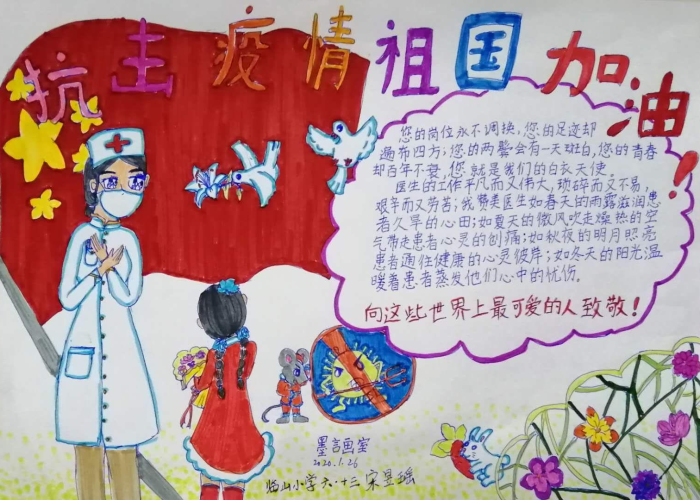 抗击疫情祖国加油!
您的岗位永不调换,您的足迹却
遍布四方;您的两鬓会有一天斑白,您的青春
却百年不衰,您就是我们的白衣天使。
医生的工作平凡而又伟大,琐碎而又不易,
艰辛而又劳苦;我赞美医生如春天的雨露滋润患
者久旱的心田;如夏天的微风吹走燥热的空
气带走患者心灵的创痛;如秋夜的明月照亮
患者通往健康的心灵彼岸;如冬天的阳光温
暖着患者蒸发他们心中的忧伤。
向这些世界上最可爱的人致敬!
墨言画室
2020.1.26
临山小学六·十三 宋昱瑶